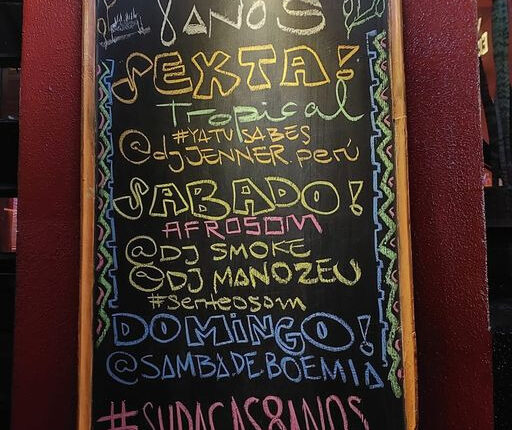 8 ANOS
SEXTA!
Tropical
#YATUSABES
@djJENNER perú
SABADO!
AFROSOM
@DJ SMOKE
@DJ MANOZEU
#senteosom
DOMiNGO!
@SAMBADEBOEMIA
#SUDACAS8ANOS